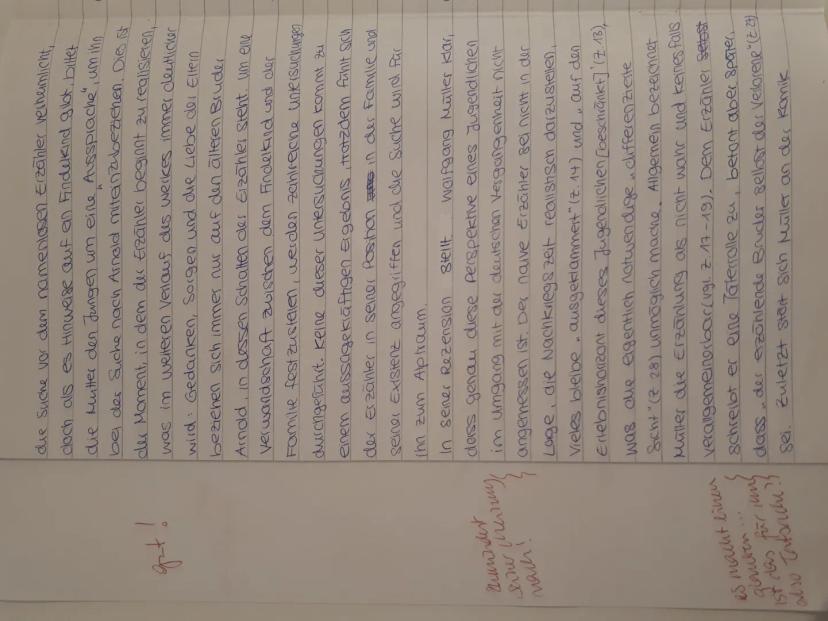 die Suche vor dem namenlosen Erzähler verheimlicht,
doch als es Hinweise auf ein Findelkind gibt, bittet
die Mutter den Jungen um eine „Aussprache", um ihn
bei der Suche nach Arnold miteinzubeziehen. Dies ist
der Moment, in dem der Erzähler beginnt zu realisieren,
was im weiteren Verlauf des Werkes immer deutlicher
wird: Gedanken, Sorgen und die Liebe der Eltern
beziehen sich immer nur auf den älteren Bruder
Arnold, in dessen Schatten der Erzähler steht. Um eine
Verwandschaft zwischen dem Findelkind und der
Familie festzustellen, werden zahlreiche Untersuchungen
durchgeführt. Keine dieser Untersuchungen kommt zu
einem aussagekräftigen Ergebnis, trotzdem fühlt sich
der Erzähler in seiner Position in der Familie und
seiner Existenz angegriffen und die Suche wird für
ihn zum Alptraum.
In seiner Rezension stellt Wolfgang Müller klar,
dass genau diese Perspektive eines Jugendlichen
im Umgang mit der deutschen Vergangenheit nicht
angemessen ist. Der naive Erzähler sei nicht in der
Lage, die Nachkriegszeit realistisch darzustellen,
vieles bleibe „ausgeklammert" (Z. 14) und „auf den
Erlebnishorizont dieses Jugendlichen [beschränkt]" (Z. 13),
was die eigentlich notwendige „differenzierte
Sicht" (Z. 28) unmöglich mache. Allgemein bezeichnet
Müller die Erzählung als nicht wahr und keinesfalls
verallgemeinerbar (vgl. Z. 17-19). Dem Erzähler selbst
schreibt er eine Täterrolle zu, betont aber später,
dass „der erzählende Bruder selbst der Verlorene" (Z. 27)
sei. Zuletzt stört sich Müller an der Komik
gut!
zumindest
seiner Meinung
nach!
es macht einen
glauben...
ist das für ihn
also Tatsache?